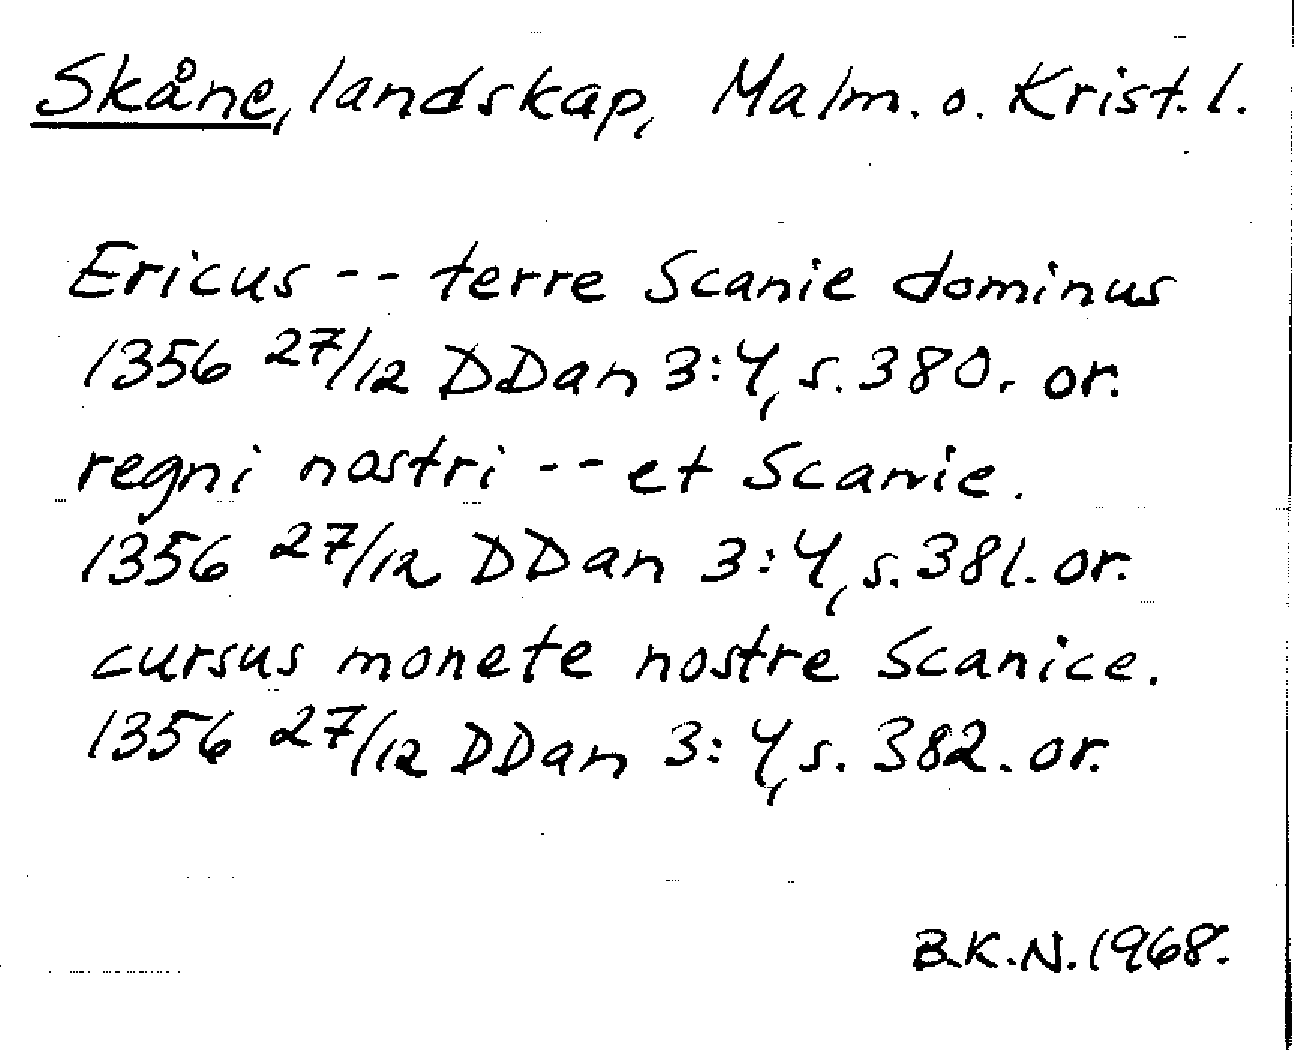 Skåne, landskap, Malm. o. Krist. l.
Ericus -- terre Scanie dominus
1356 27/12 DDan 3:4, s. 380. or.
regni nostri -- et Scanie.
1356 27/12 DDan 3:4, s. 381. or.
cursus monete nostre Scanice.
1356 27/12 DDan 3:4, s. 382. or.
B.K.N. 1968.